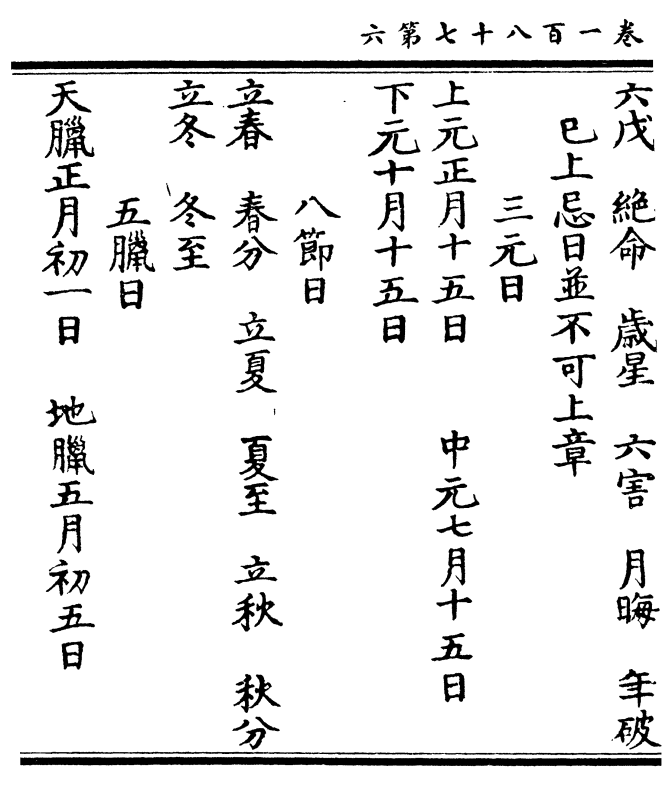 卷一百八十七第六
六戊 絶命 歲星 六害 月晦 年破
巳上忌日並不可上章
三元日
上元正月十五日 中元七月十五日
下元十月十五日
八節日
立春 春分 立夏 夏至 立秋 秋分
立冬 冬至
五臘日
天臘正月初一日 地臘五月初五日